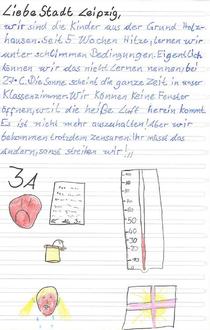 Liebe Stadt Leipzig,
wir sind die Kinder aus der Grund Holz-
hausen. Seit 5 Wochen Hitze, lernen wir
unter schlimmen Bedingungen. Eigentlich
können wir das nicht Lernen nennen bei
27°C. Die Sonne scheint die ganze Zeit in unser
Klassenzimmer. Wir können keine Fenster
öffnen, weil die heiße Luft herein kommt.
Es ist nicht mehr auszuhalten! Aber wir
bekommen trotzdem Zensuren. Ihr müsst das
ändern, sonst streiken wir!!!
3A